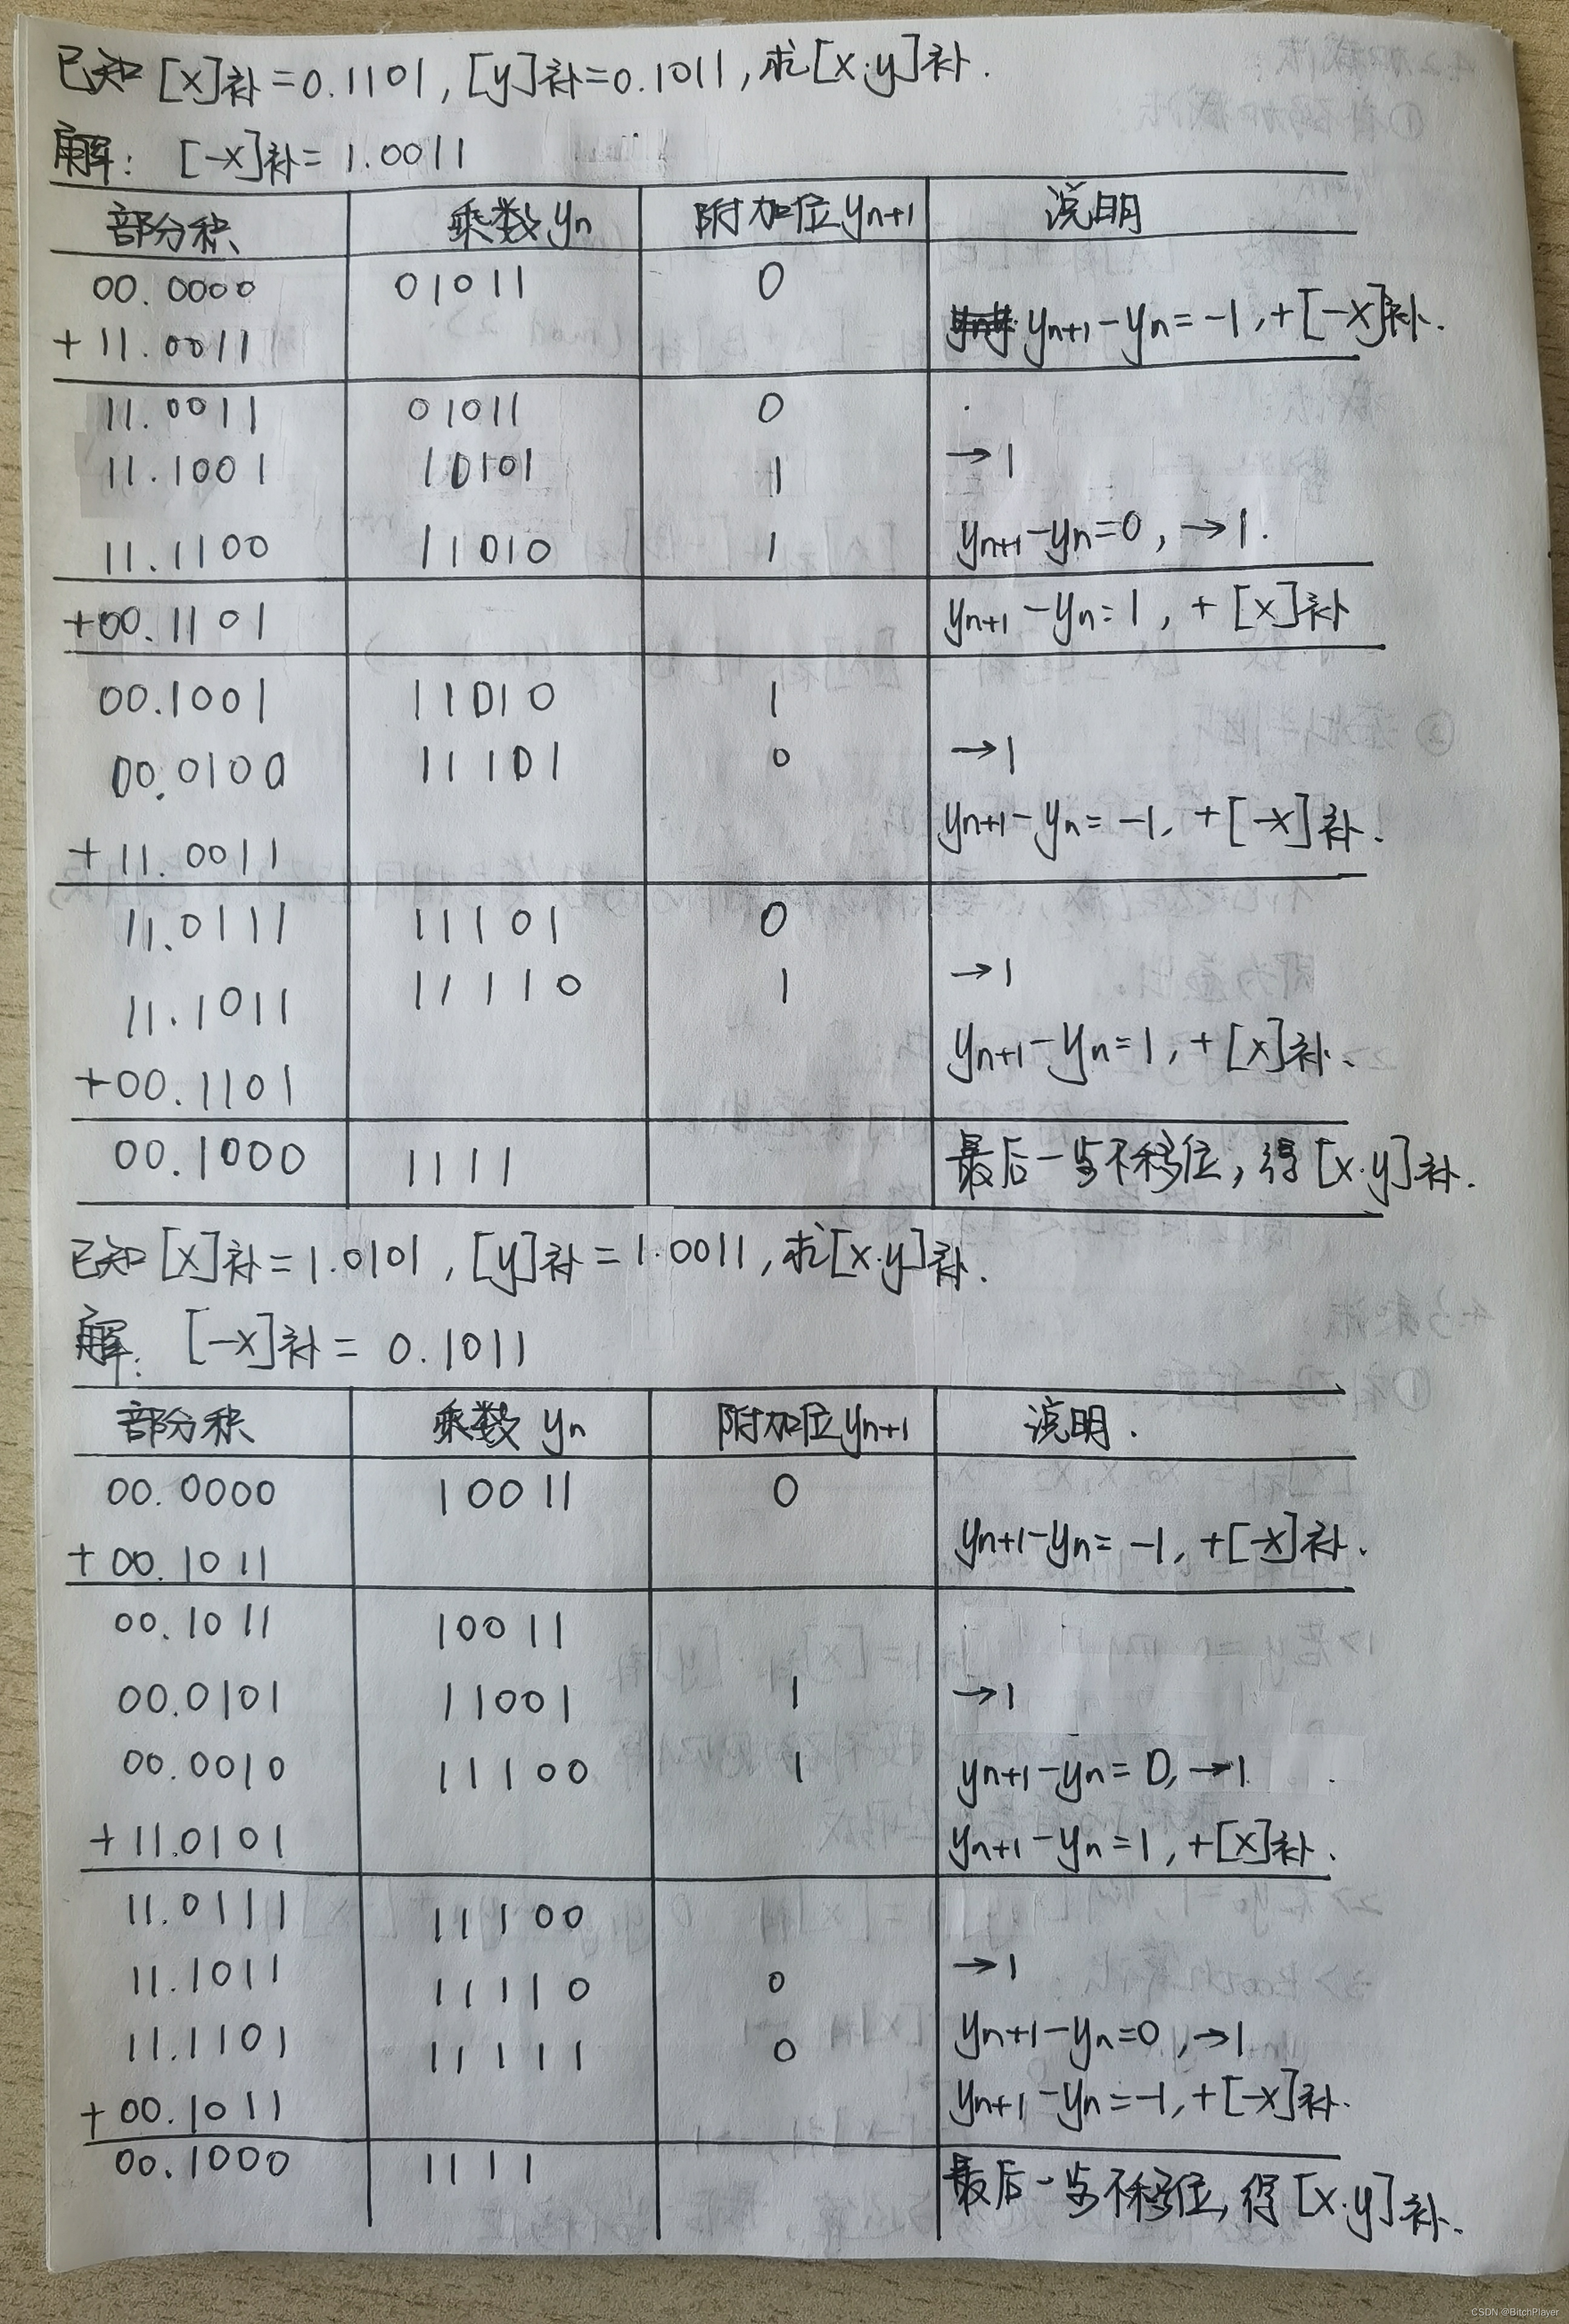 已知[x]补=0.1101,[y]补=0.1011,求[x·y]补.
解: [-x]补=1.0011
部分积 乘数yn 附加位yn+1 说明
00.0000 01011 0
+11.0011 yn+1-yn=-1,+[-x]补.
11.0011 01011 0
11.1001 10101 1 →1
11.1100 11010 1 yn+1-yn=0,→1.
+00.1101 yn+1-yn=1,+[x]补
00.1001 11010 1
00.0100 11101 0 →1
+11.0011 yn+1-yn=-1,+[-x]补.
11.0111 11101 0
11.1011 11110 1 →1
+00.1101 yn+1-yn=1,+[x]补.
00.1000 1111 最后一步不移位,得[x·y]补.
已知[x]补=1.0101,[y]补=1.0011,求[x·y]补.
解: [-x]补=0.1011
部分积 乘数yn 附加位yn+1 说明.
00.0000 10011 0
+00.1011 yn+1-yn=-1,+[-x]补.
00.1011 10011
00.0101 11001 1 →1
00.0010 11100 1 yn+1-yn=0,→1.
+11.0101 yn+1-yn=1,+[x]补.
11.0111 11100
11.1011 11110 0 →1
11.1101 11111 0 yn+1-yn=0,→1
+00.1011 yn+1-yn=-1,+[-x]补.
00.1000 1111 最后一步不移位,得[x·y]补.
CSDN @BitchPlayer